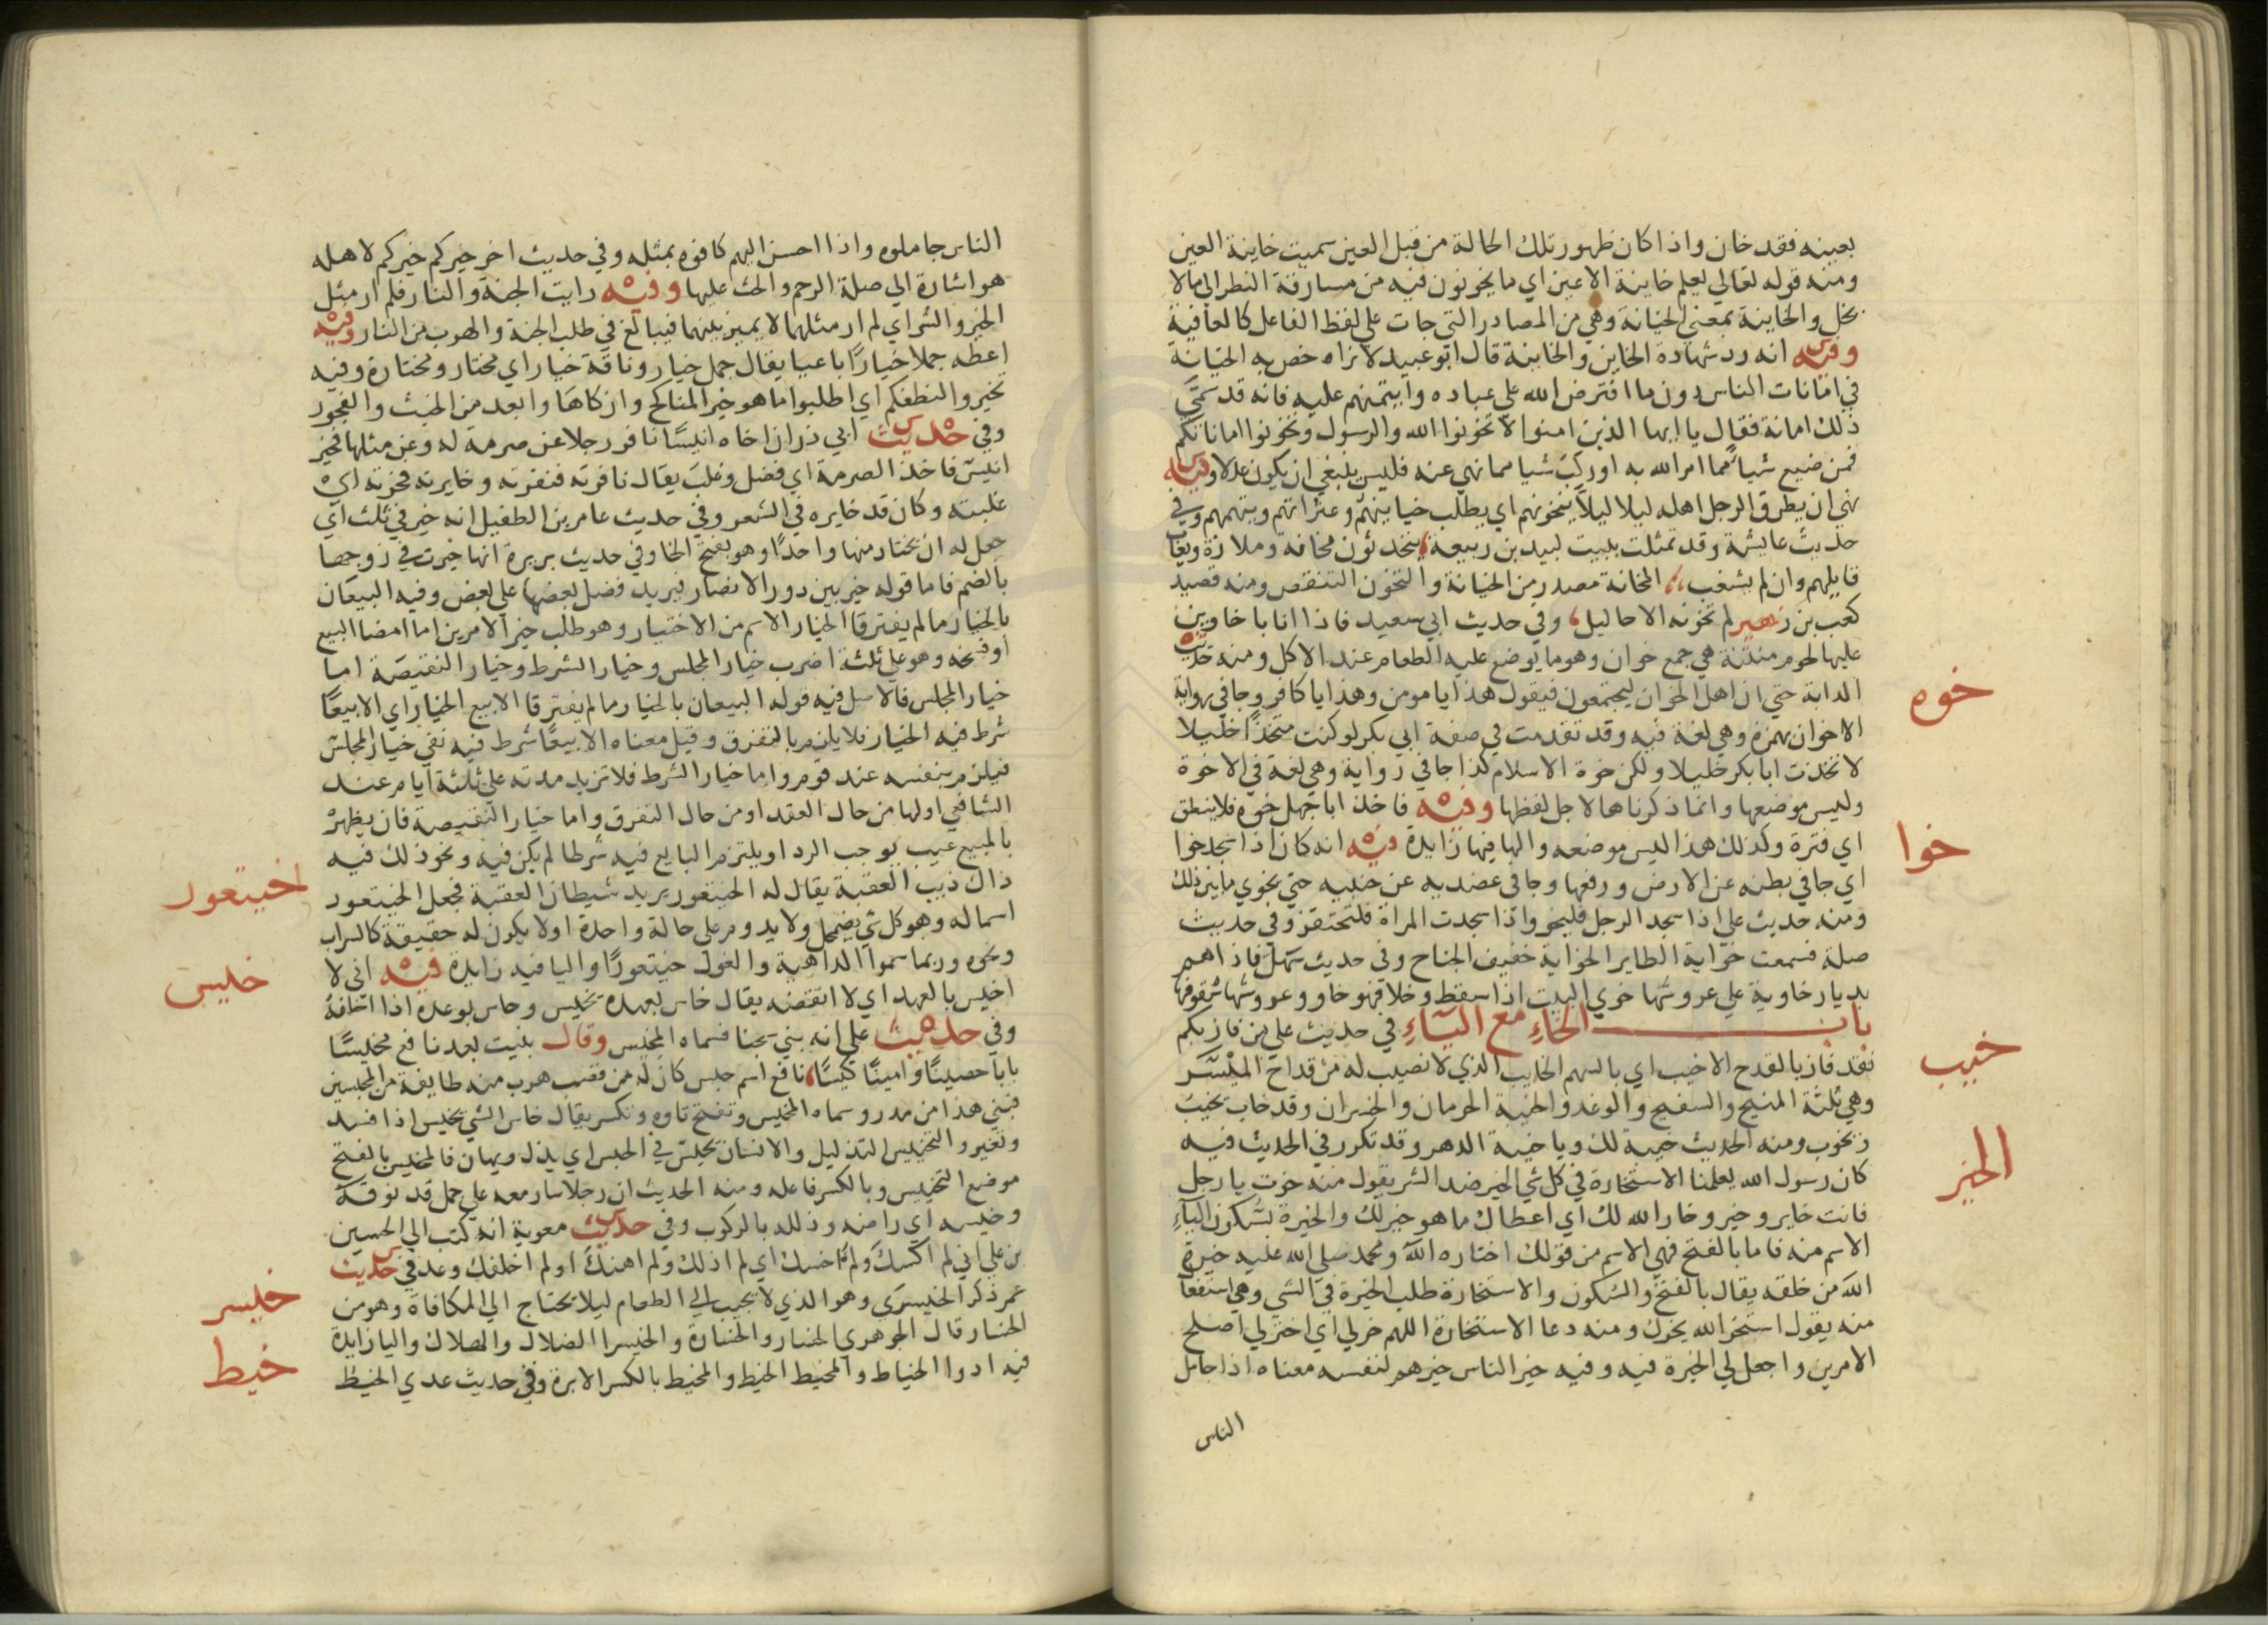 بعينه فقد خان واذا كان ظهور تلك الحالة من قبل العين سميت خاينة العين
ومنه قوله تعالي يعلم خاينة الاعين اي ما يخونون فيه من مسارقة النظر الي ما لا
يحل والخاينة بمعني الخيانة وهي من المصادر التي جات علي لفظ الفاعل كالعافية
وفيه انه رد شهادة الخاين والخاينة قال ابو عبيد لا نراه خص به الخيانة
في امانات الناس دون ما افترض الله علي عباده وايتمنهم عليه فانه قد سمي
ذلك امانة فقال يا ايها الذين امنوا لا تخونوا الله والرسول وتخونوا اماناتكم
فمن ضيع شيا مما امر الله به او ركب شيا مما نهي عنه فليس ينبغي ان يكون عدلا وفيه
نهي ان يطرق الرجل اهله ليلا ليلا يتخونهم اي يطلب خيانتهم وعثراتهم ويتهمهم وفي
حديث عايشة وقد تمثلت ببيت لبيد بن ربيعة يتحدثون مخانة وملاذة ويعاب
قايلهم وان لم يشغب المخانة مصدر من الخيانة والتخون التنقص ومنه قصيد
كعب بن زهير لم تخونه الاحاليل وفي حديث ابي سعيد فاذا انا باخاوين
عليها لحوم منتنة هي جمع خوان وهو ما يوضع عليه الطعام عند الاكل ومنه حديث
خوه
الدابة حتي ان اهل الخوان ليجتمعون فيقول هذا يا مومن وهذا يا كافر وجا في رواية
الاخوان بهمزة وهي لغة فيه وقد تقدمت في صفة ابي بكر لو كنت متخذا خليلا
لاتخذت ابا بكر خليلا ولكن خوة الاسلام كذا جا في رواية وهي لغة في الاخوة
وليس موضعها وانما ذكرناها لاجل لفظها وفيه فاخذ ابا جهل خوة فلا ينطق
خوا
اي فترة وكذلك هذا ليس موضعه والها فيها زايدة فيه انه كان اذا سجد خوا
اي جافي بطنه عن الارض ورفعها وجافي عضديه عن جنبيه حتي يخوي ما بين ذلك
ومنه حديث علي اذا سجد الرجل فليخو واذا سجدت المراة فلتحتفز وفي حديث
صلة فسمعت خواية الطاير الخواية حفيف الجناح وفي حديث سهل فاذا هم
بديار خاوية علي عروشها خوي البيت اذا سقط وخلا فهو خاو وعروشها سقوفها
باب الخاء مع الياء في حديث علي من فاز بكم
خيب
فقد فاز بالقدح الاخيب اي بالسهم الخايب الذي لا نصيب له من قداح الميسر
وهي ثلثة المنيح والسفيح والوغد والخيبة الحرمان والخسران وقد خاب يخيب
ويخوب ومنه الحديث خيبة لك ويا خيبة الدهر وقد تكرر في الحديث فيه
الخير
كان رسول الله يعلمنا الاستخارة في كل شي الخير ضد الشر يقول منه خرت يا رجل
فانت خاير وخير وخار الله لك اي اعطاك ما هو خير لك والخيرة بسكون الياء
الاسم منه فاما بالفتح فهي الاسم من قولك اختاره الله ومحمد صلي الله عليه خيرة
الله من خلقه يقال بالفتح والسكون والاستخارة طلب الخيرة في الشي وهي استفعال
منه يقول استخر الله يخرك ومنه دعا الاستخارة اللهم خر لي اي اختر لي اصلح
الامرين واجعل لي الخيرة فيه وفيه خير الناس خيرهم لنفسه معناه اذا جامل
الناس
الناس جاملوه واذا احسن اليهم كافوه بمثله وفي حديث اخر خيركم خيركم لاهله
هو اشارة الي صلة الرحم والحث عليها وفيه رايت الجنة والنار فلم ار مثل
الخير والشر اي لم ار مثلهما لا يميز بينهما فيبالغ في طلب الجنة والهرب من النار وفيه
اعطه جملا خيارا رباعيا يقال جمل خيار وناقة خيار اي مختار ومختارة وفيه
تخيروا لنطفكم اي اطلبوا ما هو خير المناكح وازكاها وابعد من الخبث والفجور
وفي حديث ابي ذر ان اخاه انيسا نافر رجلا عن صرمة له وعن مثلها فخير
انيس فاخذ الصرمة اي فضل وغلب يقال نافرته فنفرته وخايرته فخرته اي
غلبته وكان قد خايره في الشعر وفي حديث عامر بن الطفيل انه خير في ثلث اي
جعل له ان يختار منها واحدا وهو بفتح الخا وفي حديث بريرة انها خيرت في زوجها
بالضم فاما قوله خير بين دور الانصار فيريد فضل بعضها علي بعض وفيه البيعان
بالخيار ما لم يفترقا الخيار الاسم من الاختيار وهو طلب خير الامرين اما امضا البيع
او فسخه وهو علي ثلثة اضرب خيار المجلس وخيار الشرط وخيار النقيصة اما
خيار المجلس فالاصل فيه قوله البيعان بالخيار ما لم يفترقا الا بيع الخيار اي الا بيعا
شرط فيه الخيار فلا يلزم بالتفرق وقيل معناه الا بيعا شرط فيه نفي خيار المجلس
فيلزم بنفسه عند قوم واما خيار الشرط فلا تزيد مدته علي ثلثة ايام عند
الشافعي اولها من حال العقد او من حال التفرق واما خيار النقيصة فان يظهر
بالمبيع عيب يوجب الرد او يلتزم البايع فيه شرطا لم يكن فيه ونحو ذلك فيه
اخيتعور
ذاك ذيب العقبة يقال له الخيتعور يريد شيطان العقبة فجعل الخيتعور
اسما له وهو كل شي يضمحل ولا يدوم علي حالة واحدة او لا يكون له حقيقة كالسراب
ونحوه وربما سموا الداهية والغول خيتعورا واليا فيه زايدة فيه اني لا
خليس
اخيس بالعهد اي لا انقضه يقال خاس بعهده يخيس وخاس بوعده اذا اخلفه
وفي حديث علي انه بني سجنا فسماه المخيس وقال بنيت بعد نافع مخيسا
بابا حصينا وامينا كيسا نافع اسم حبس كان له من قصب هرب منه طايفة من المحبسين
فبني هذا من مدر وسماه المخيس وتفتح ياوه وتكسر يقال خاس الشي يخيس اذا فسد
وتغير والتخييس التذليل والانسان يخيس في الحبس اي يذل ويهان فالمخيس بالفتح
موضع التخييس وبالكسر فاعله ومنه الحديث ان رجلا سار معه علي جمل قد نوقه
وخيسه اي راضه وذلله بالركوب وفي حديث معوية انه كتب الي الحسين
بن علي اني لم اكسك ولم اخسك اي لم اذلك ولم اهنك او لم اخلفك وعد في حديث
خليسر
عمر ذكر الخيسري وهو الذي لا يجيب الي الطعام ليلا يحتاج الي المكافاة وهو من
الخسار قال الجوهري الخسار والخسارة والخيسرا الضلال والهلاك واليا زايدة
خيط
فيه ادوا الخياط والمخيط الخيط والمخيط بالكسر الابرة وفي حديث عدي الخيط